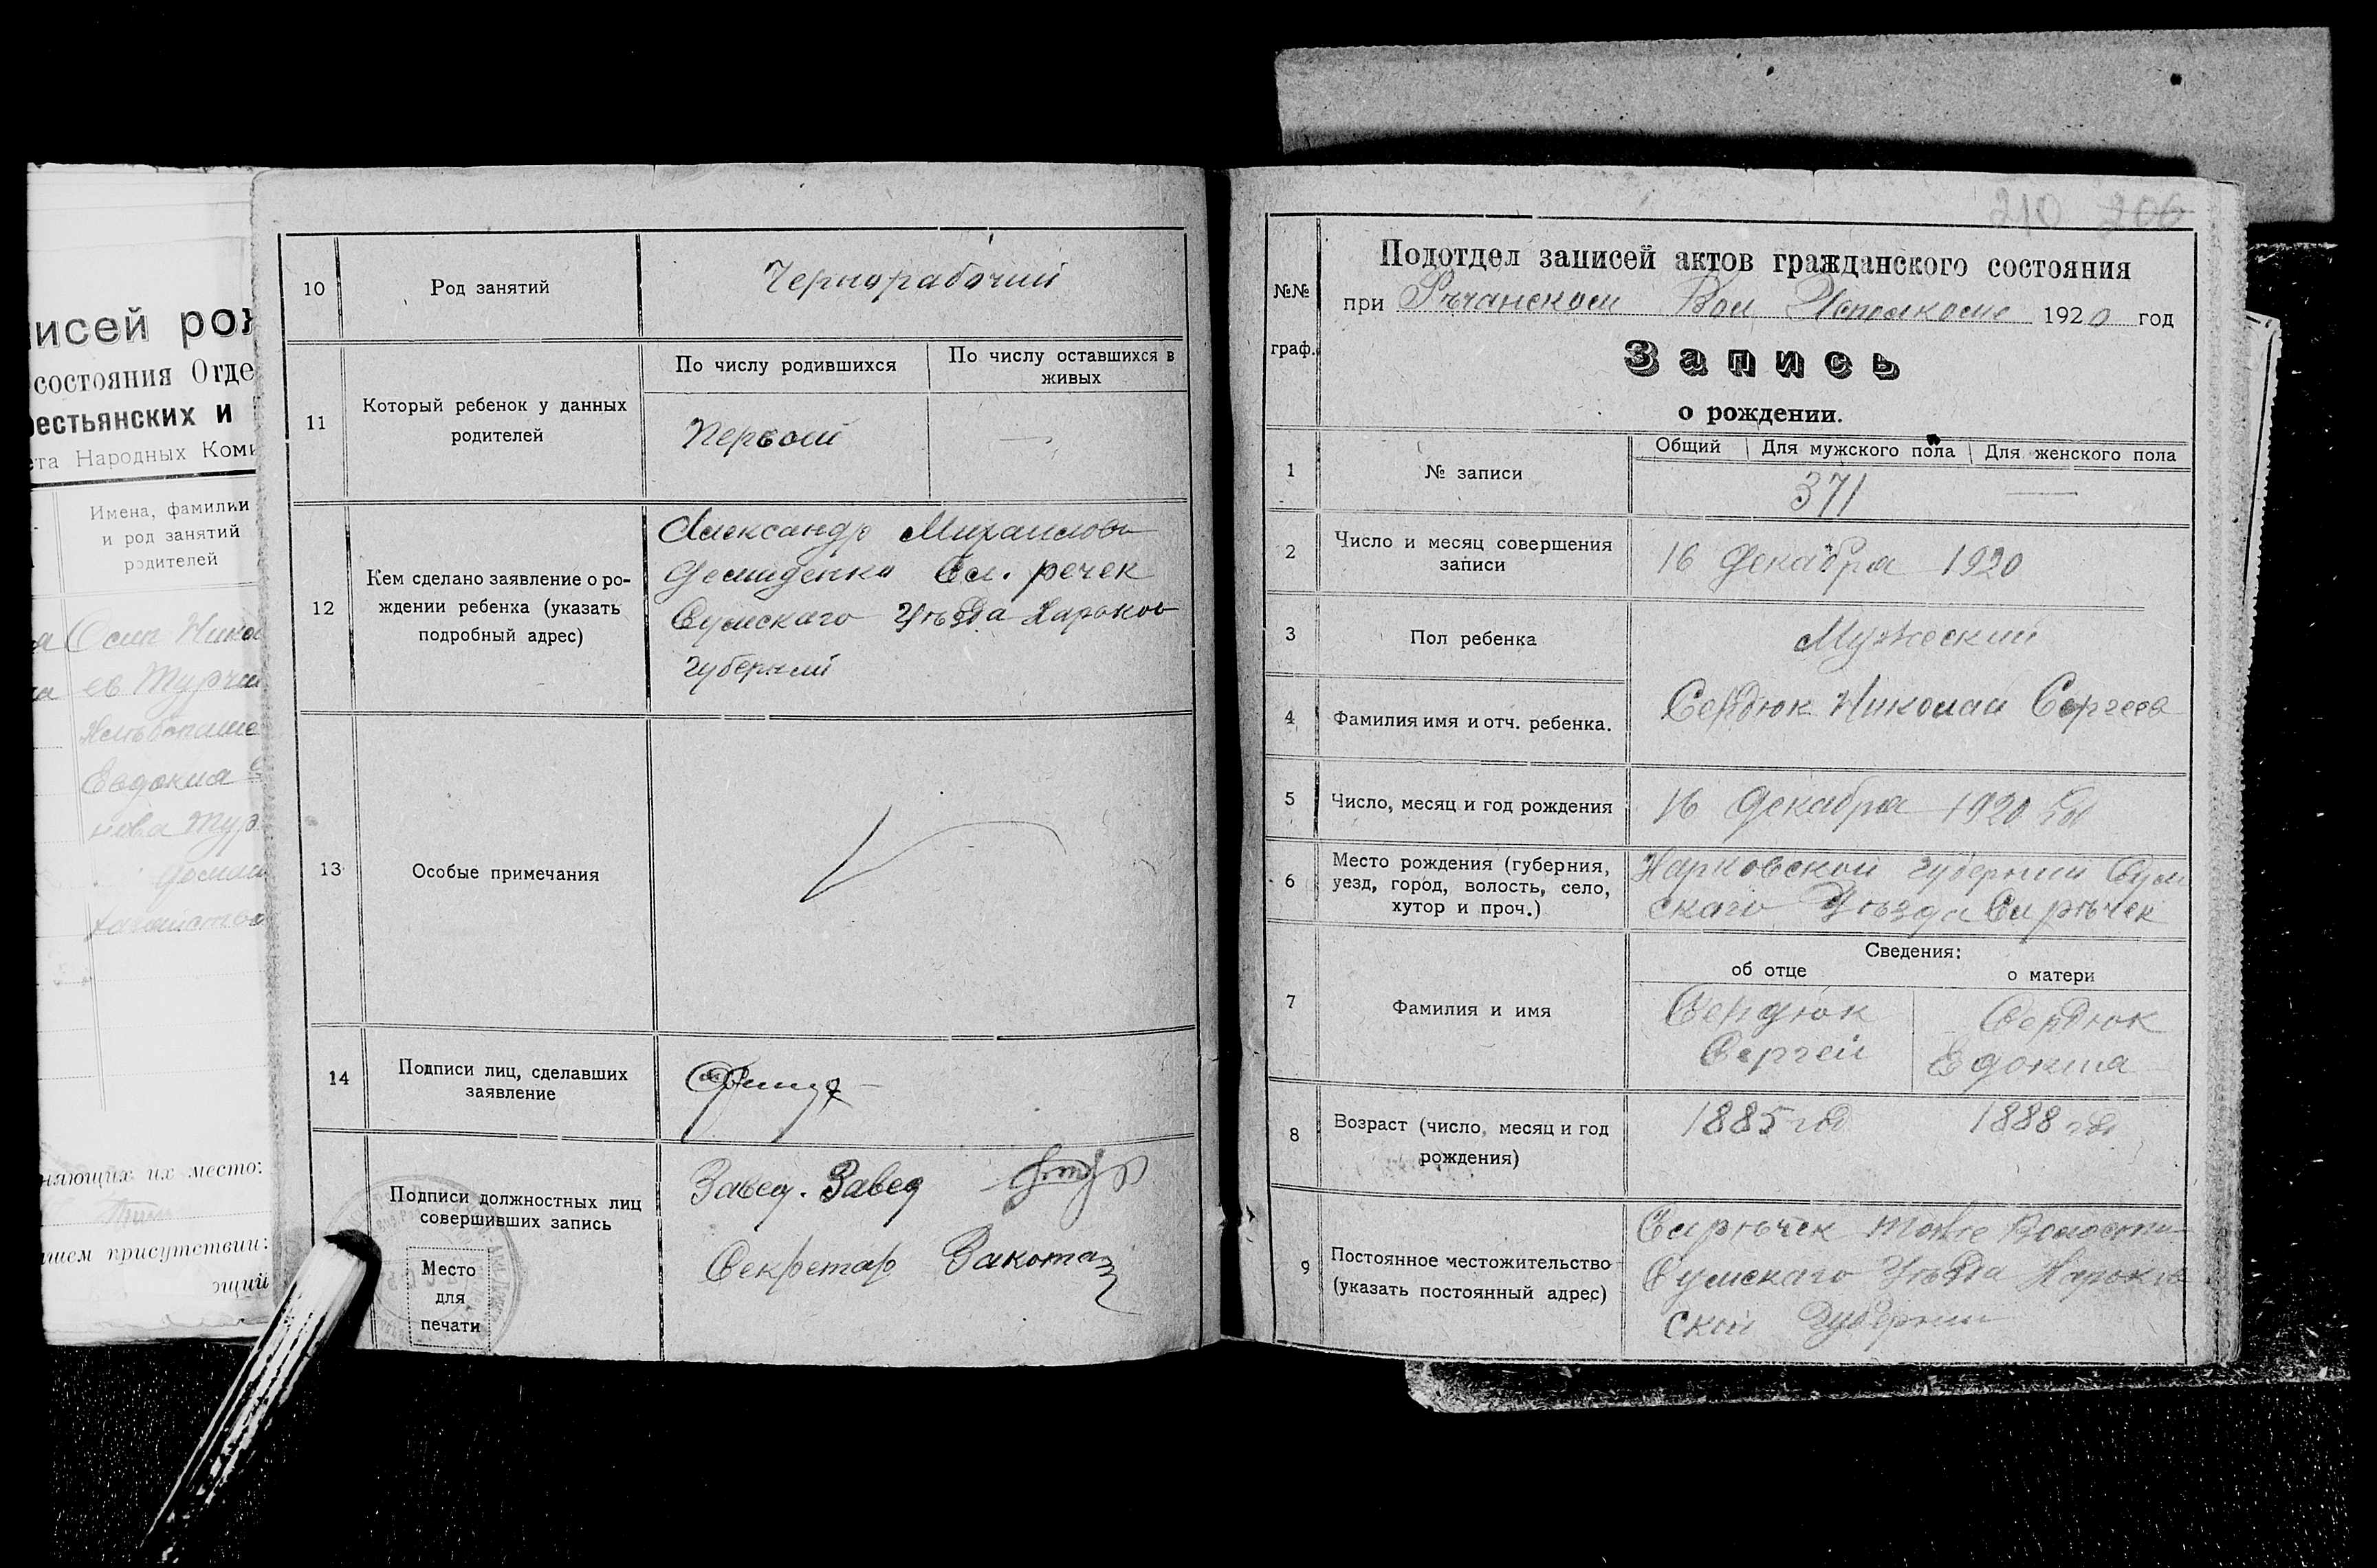 исей рож
состояния Отде
рестьянских и
ета Народных Коми
Имена, фамилии
и род занятий
родителей
Осип Никол
ев Турчи
Евдокия
няющих их место:
шем присутствии:
10
Род занятий
Чернорабочий
11
Который ребенок у данных
родителей
По числу родившихся
По числу оставшихся в
живых
Первый
—
12
Кем сделано заявление о ро-
ждении ребенка (указать
подробный адрес)
Александр Михаилови
Демиденко Сл. речек
Сумскаго Уѣзда Харьков
губерний
13
Особые примечания
14
Подписи лиц, сделавших
заявление
Подписи должностных лиц
совершивших запись
Место
для
печати
Завед. Завед
Секретар Закота
210 206
№№
граф.
Подотдел записей актов гражданского состояния
при Рѣчанском Вол Исполкоме 1920 год
Запись
о рождении.
1
№ записи
Общий
Для мужского пола
Для женского пола
371
—
2
Число и месяц совершения
записи
16 Декабря 1920
3
Пол ребенка
Мужеский
4
Фамилия имя и отч. ребенка.
Сердюк Николай Сергеев
5
Число, месяц и год рождения
16 Декабря 1920 год
6
Место рождения (губерния,
уезд, город, волость, село,
хутор и проч.)
Харковской губернии Сум
скаго Уѣзда Сл рѣчек
7
Фамилия и имя
Сведения:
об отце
о матери
Сердюк
Сергей
Сердюк
Едокия
8
Возраст (число, месяц и год
рождения)
1885 год
1888 год
9
Постоянное местожительство
(указать постоянный адрес)
Сл рѣчек тоже Волости
Сумскаго Уѣзда Харьков
ской Губернии